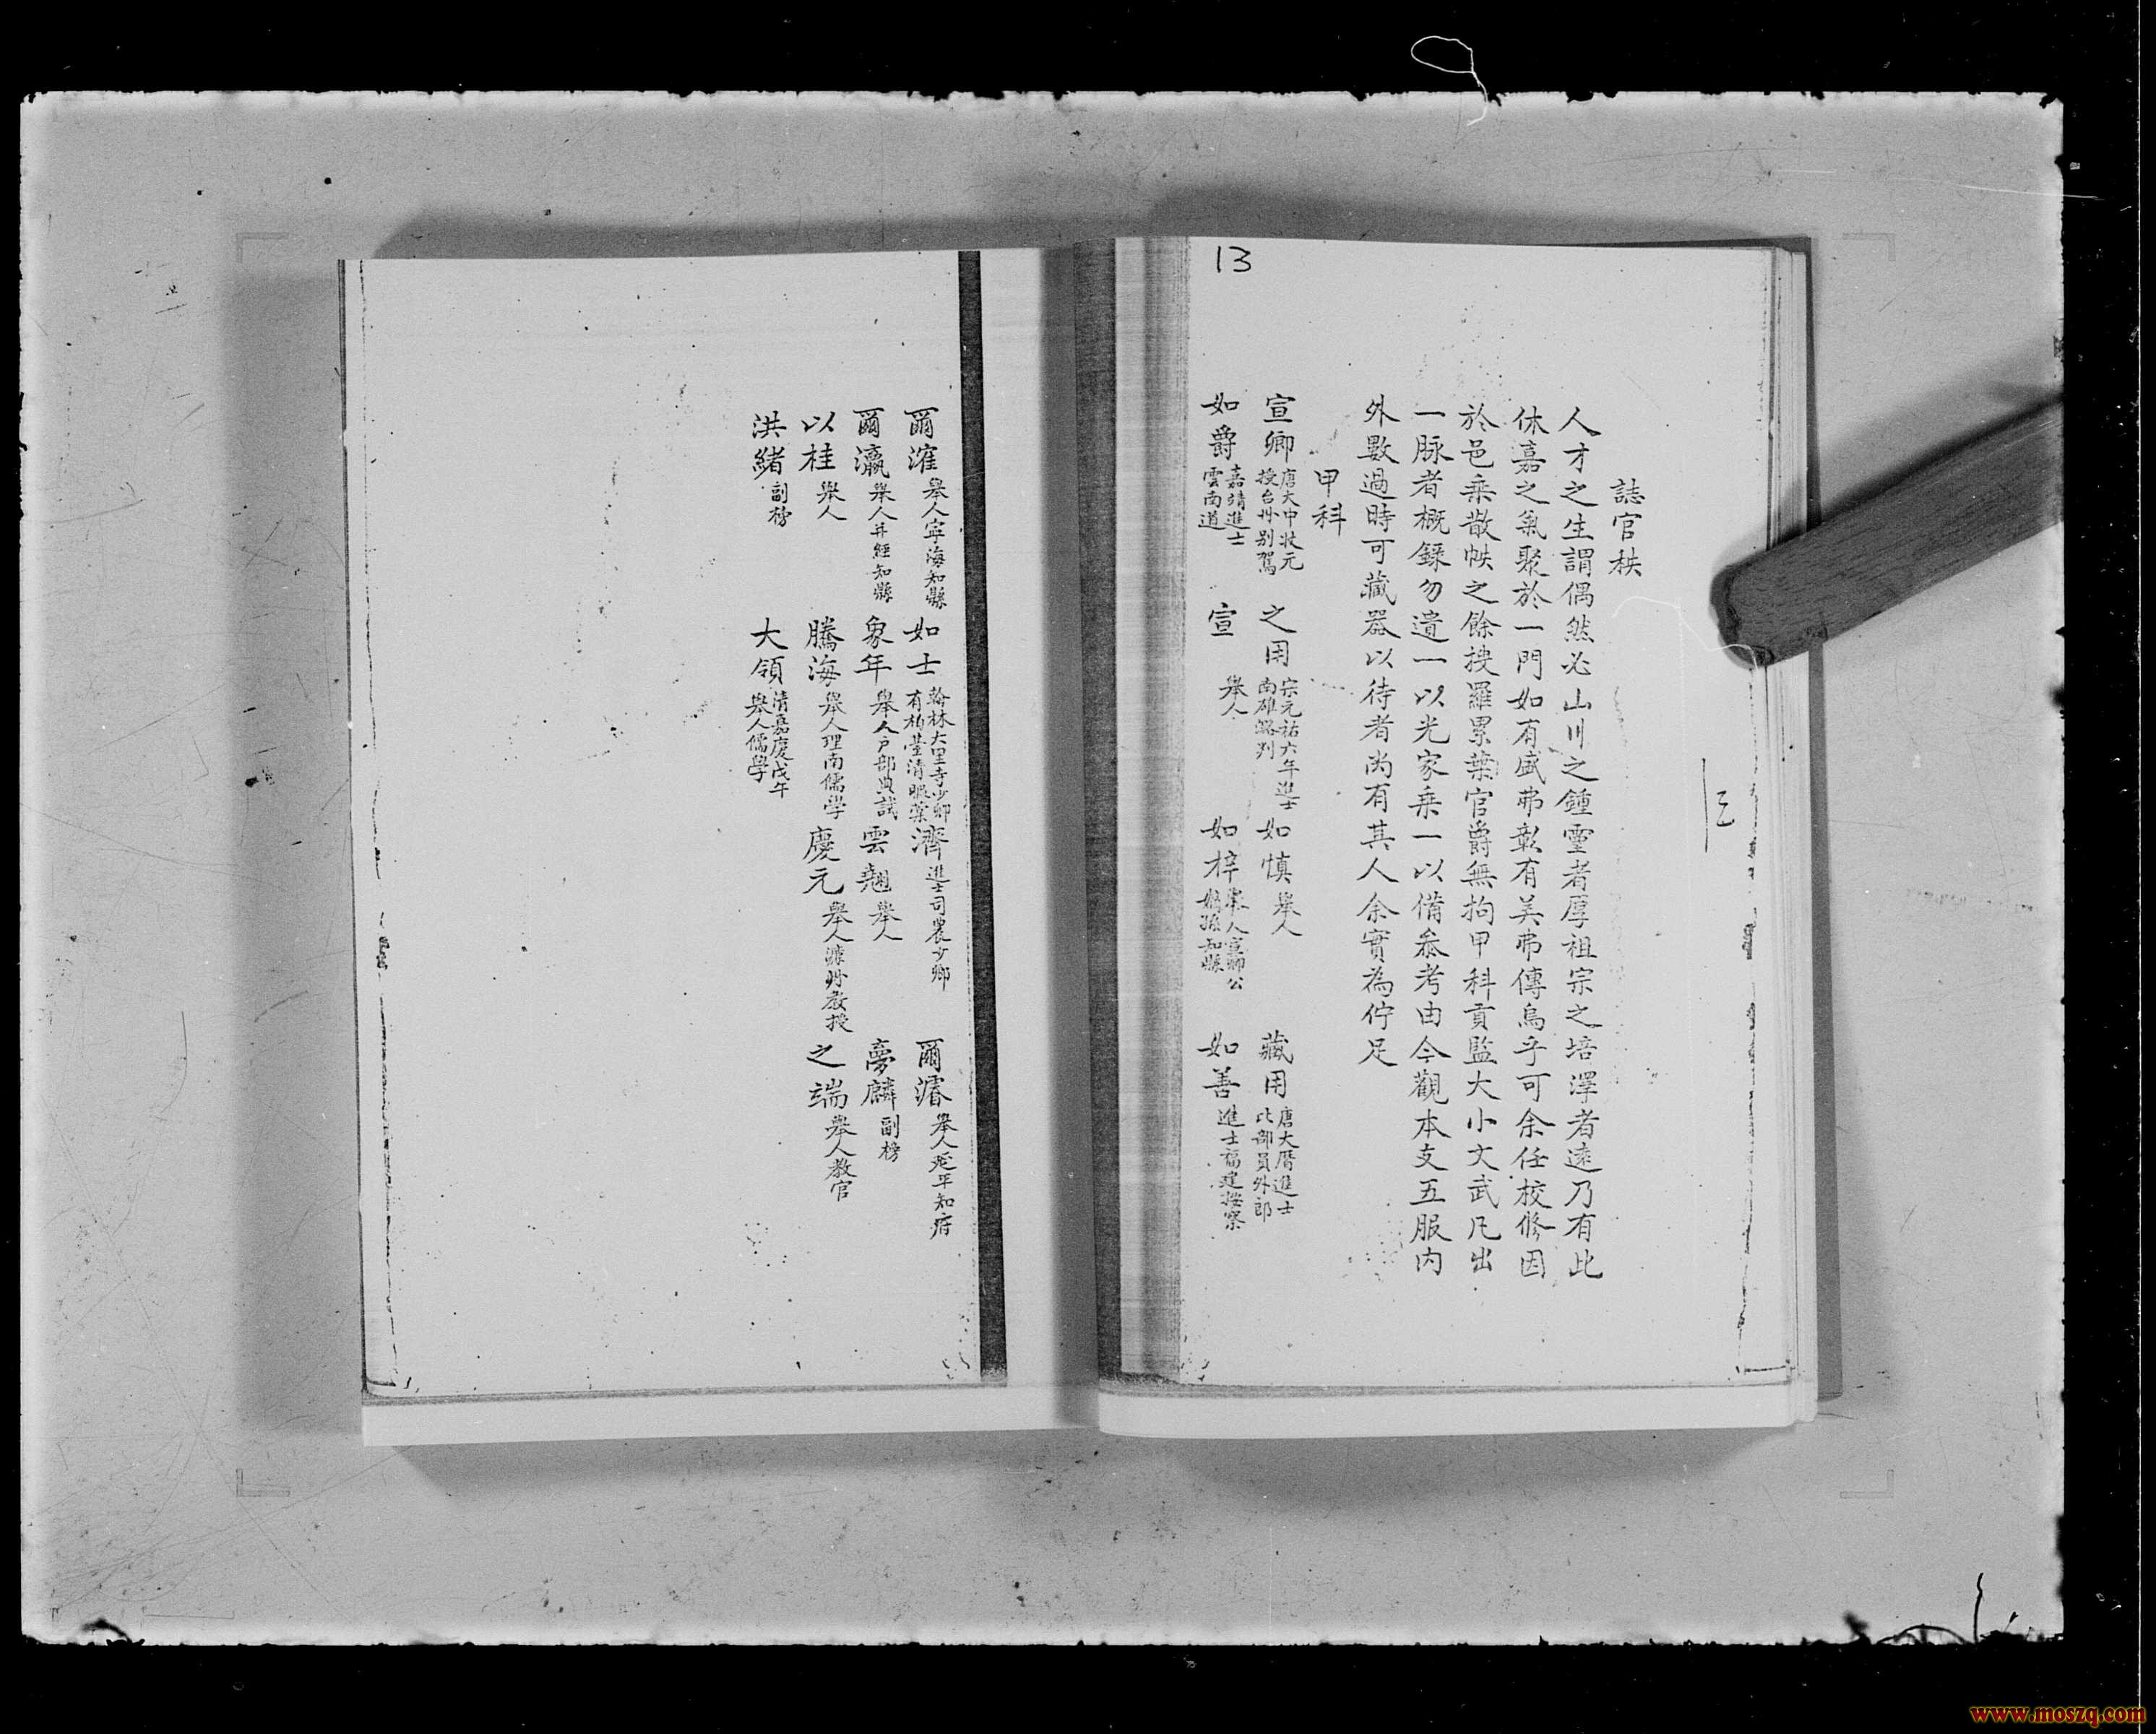 13
誌官秩
人才之生謂偶然必山川之鍾靈者厚祖宗之培澤者遠乃有此
休嘉之氣聚於一門如有盛弗彰有美弗傳烏乎可余任校修因
於邑乘散帙之餘搜羅累葉官爵無拘甲科貢監大小文武凡出
一脉者概錄勿遺一以光家乘一以備叅考由今觀本支五服内
外數過時可藏器以待者尚有其人余實為佇足
甲科
宣卿 唐大中狀元授台州别駕 之用 宋元祐六年進士南雄 判 如慎 舉人 藏用 唐大曆進士比部員外郎
如爵 嘉靖進士雲南道 宣 舉人 如梓 舉人宣卿公嫡孫知縣 如善 進士福建按察
爾漼 舉人寧海知縣 如士 翰林大理寺少卿有柏臺清暇葉 濟 進士司農少卿 爾濬 舉人延平知府
爾瀛 舉人井經知縣 象年 舉人户部典試 雲翹 舉人 夢麟 副榜
以桂 舉人 騰海 舉人理南儒學 慶元 舉人 州教授 之端 舉人教官
洪緒 副榜 大領 清嘉慶戊午舉人儒學
www.moszq.com